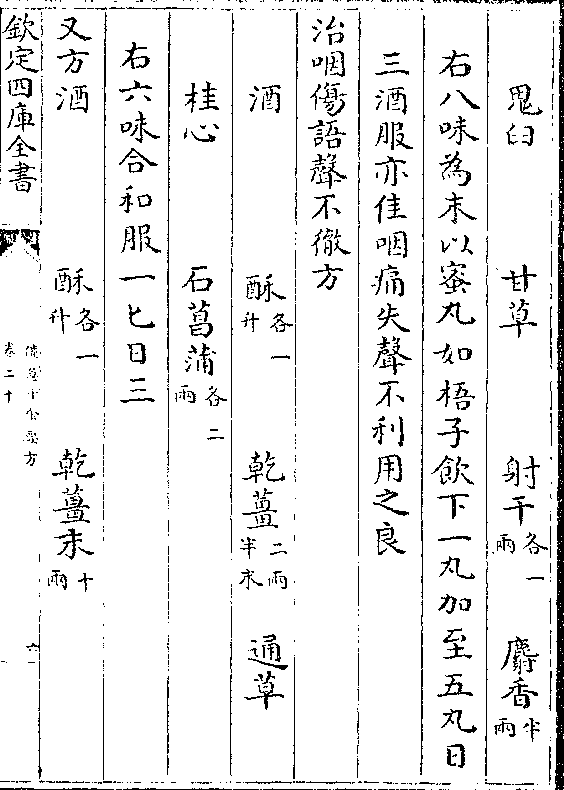 鬼臼　甘草　射干各一兩　麝香半兩
右八味為末以蜜丸如梧子飲下一丸加至五丸日
三酒服亦佳咽痛失聲不利用之良
治咽傷語聲不徹方
酒　酥各一升　乾薑二兩半末　通草
桂心　石菖蒲各二兩
右六味合和服一匕日三
又方酒　酥各一升　乾薑末十兩
欽定四庫全書
備急千金要方
卷二十